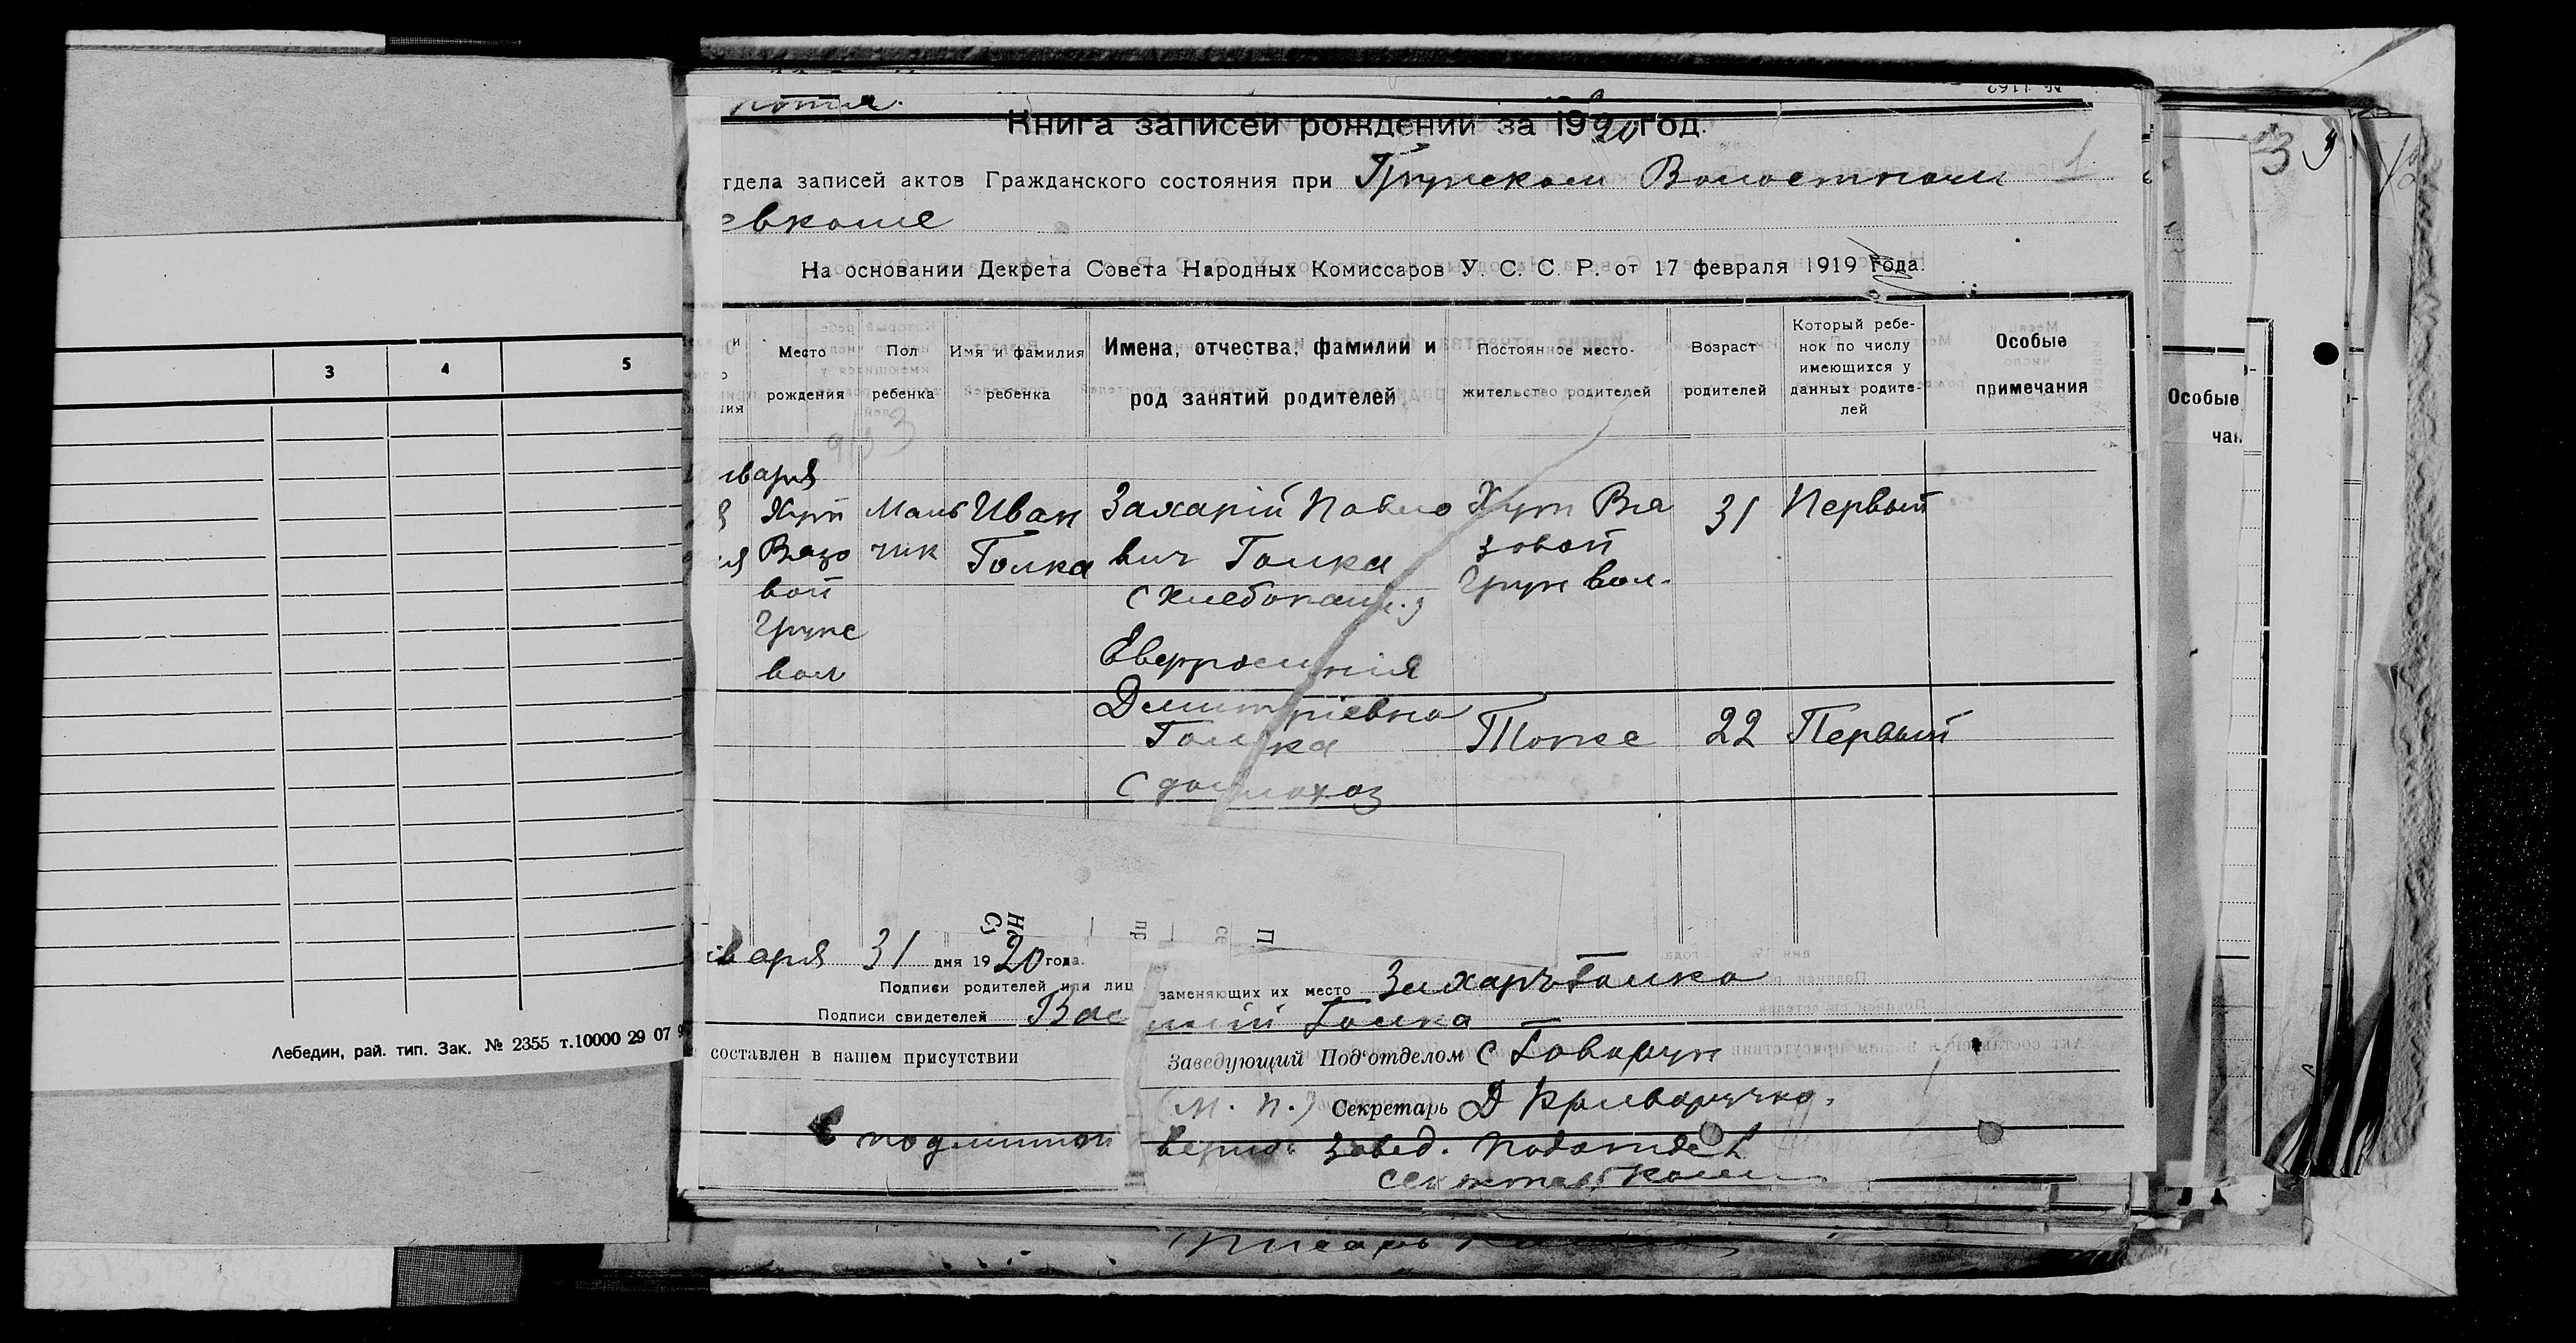 3
4
5
Лебедин, рай. тип. Зак. № 2355 т.10000 29 07
Книга записей рождений за 1920 год.
тдела записей актов Гражданского состояния при Грунском Волостном
евкоме
1
На основании Декрета Совета Народных Комиссаров У. С. С. Р. от 17 февраля 1919 года.
Место рождения
Пол ребенка
Имя и фамилия ребенка
Имена, отчества, фамилии и род занятий родителей
Постоянное место-
жительство родителей
Возраст родителей
Который ребе-
нок по числу
имеющихся у
данных родите-
лей
Особые примечания
нваря
Хут
Вязо
вой
Грунс
вол
Маль
чик
Иван
Голка
Захарій Павло
вич Голка
(хлебопаш.)
Хут Вя
зовой
Грун вол.
31
Первый
Евфросинія
Дмитріевна
Голка
(домохоз
Тоже
22
Первый
нваря 31 дня 1920 года.
Подписи родителей или лиц заменяющих их место Захаръ Голка
Подписи свидетелей Василій Голка
составлен в нашем присутствии
Заведующий Под'отделом С Говорун
(М. П.) Секретарь Д Криворучко.
С подлинной верно: Завед. Подотдел
Особые
чан